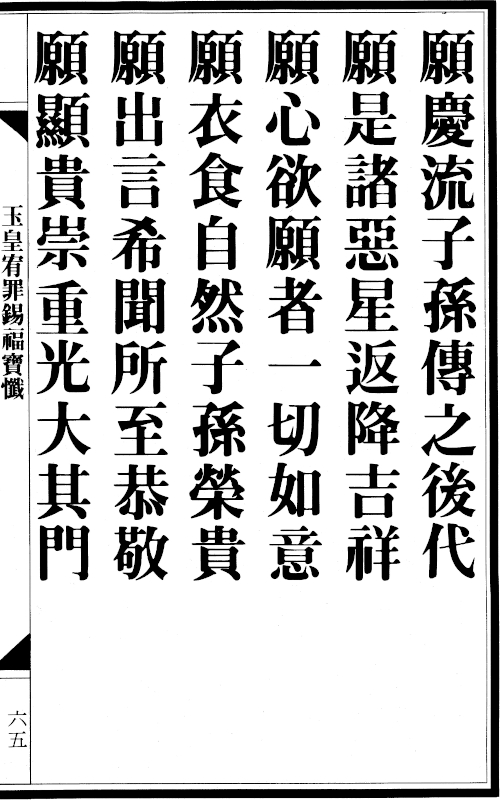 願慶流子孫傳之後代
願是諸惡星返降吉祥
願心欲願者一切如意
願衣食自然子孫榮貴
願出言希聞所至恭敬
願顯貴崇重光大其門
玉皇宥罪錫福寶懺
六五